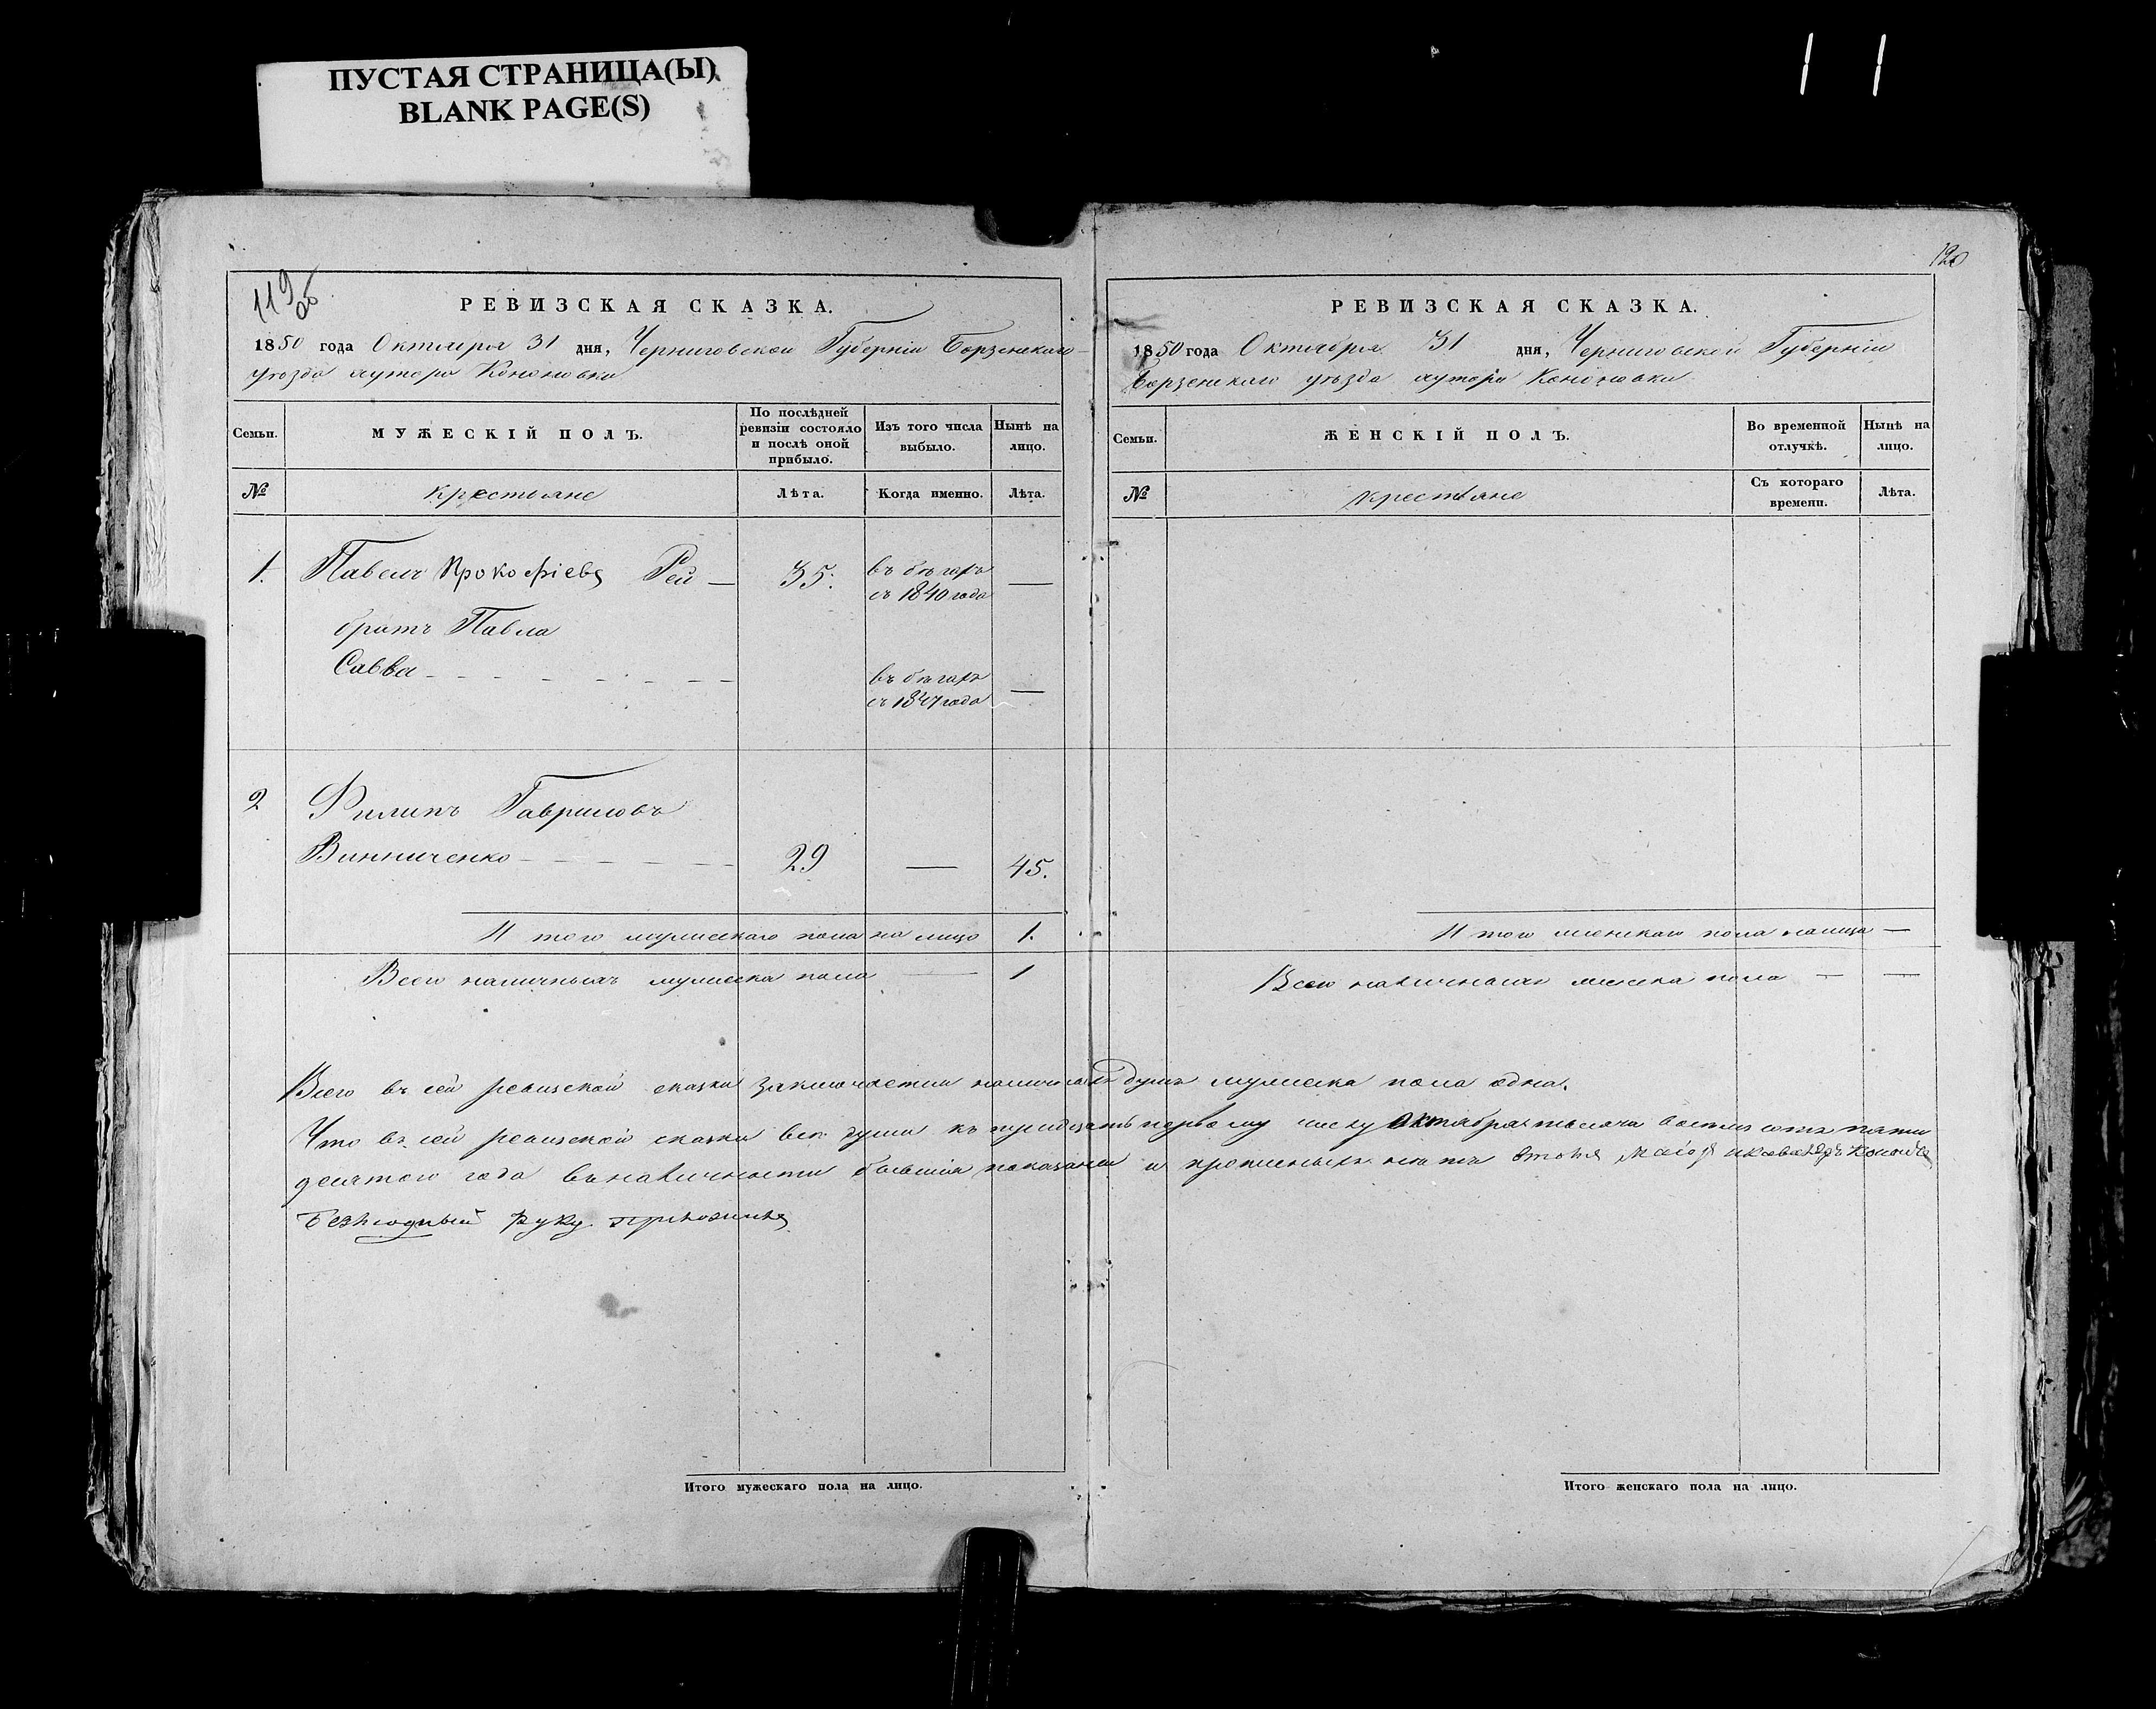 ПУСТАЯ СТРАНИЦА(Ы)
BLANK PAGE(S)
119 об
РЕВИЗСКАЯ СКАЗКА.
1850 года Октября 31 дня, Черниговской Губерніи Борзенскаго
уѣзда хутора Кононовки
Семьи.
МУЖЕСКІЙ ПОЛЪ.
По послѣдней ревизіи состояло и послѣ оной прибыло.
Изъ того числа выбыло.
Нынѣ на лицо.
№
крестьяне
Лѣта.
Когда именно.
Лѣта.
1. Павелъ Прокофіевъ Рей — 35. въ бѣгахъ —
съ 1840 года
братъ Павла
Савва въ бѣгахъ —
съ 1847 года
2 Филипъ Гавриловъ
Винниченко 29 — 45.
И того мужескаго пола на лицо 1.
Всего наличныхъ мужеска пола — 1
Итого мужескаго пола на лицо.
120
РЕВИЗСКАЯ СКАЗКА.
1850 года Октября 31 дня, Черниговской Губерніи
Борзенскаго уѣзда хутора Кононовки
Семьи.
ЖЕНСКІЙ ПОЛЪ.
Во временной отлучкѣ.
Нынѣ на лицо.
№
крестьяне
Съ котораго времени.
Лѣта.
И того женскаго пола на лицо —
Всего наличныхъ женска пола — —
Всего въ сей ревизской сказки заключается наличныхъ душъ мужеска пола одна.
Что въ сей ревизской сказки всѣ души къ тридцать первому числу Октября тысяча восемь сотъ пяти
десятого года въ наличности бывшія показаны и прописныхъ нѣтъ
руку приложилъ
Итого женскаго пола на лицо.